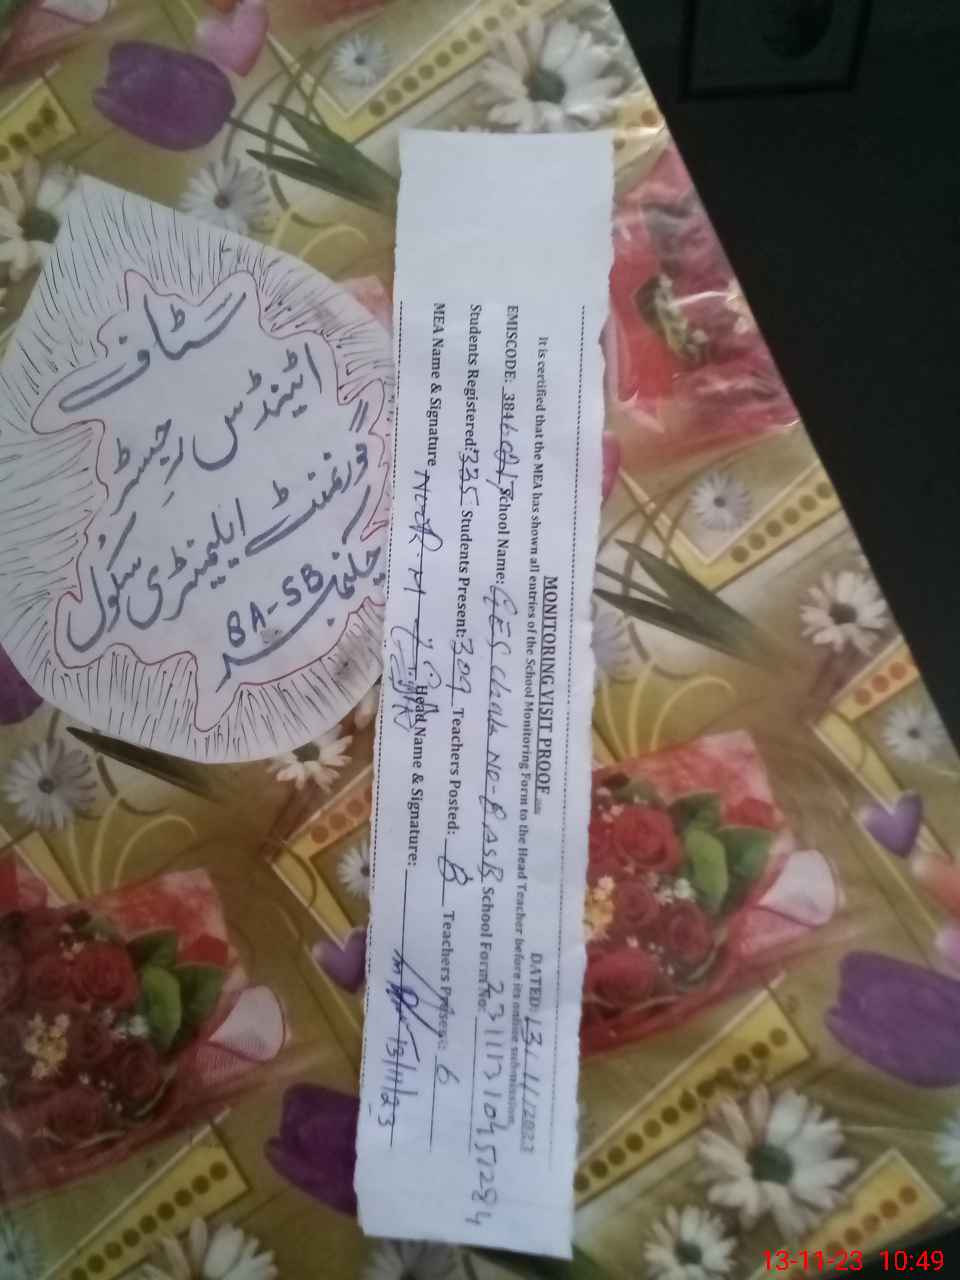 سٹاف
اٹینڈس رجسٹر
گورنمنٹ ایلیمنٹری سکول
8A-SB
MONITORING VISIT PROOF
DATED: 13/11/2023
It is certified that the MEA has shown all entries of the School Monitoring Form to the Head Teacher before its online submission.
EMISCODE: School Name: GES Chak No-8 ASB School Form No:
Students Registered: 335 Students Present: 309 Teachers Posted: 8 Teachers Present: 6
MEA Name & Signature Head Name & Signature: 13/11/23
13-11-23 10:49